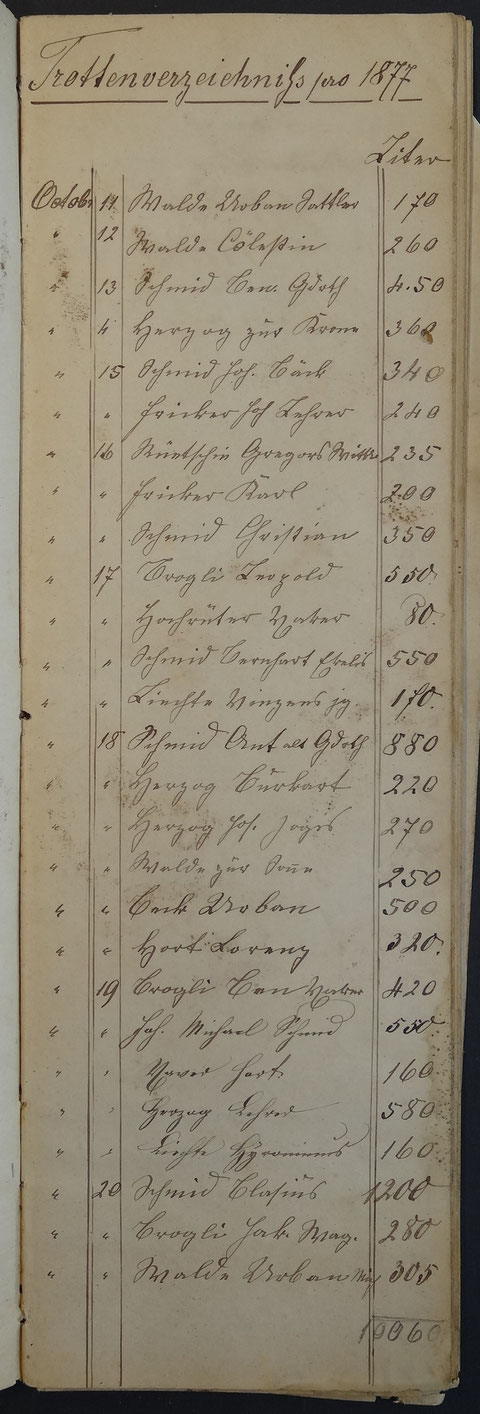 Trottenverzeichniß pro 1877
Liter
Octob. 11 Walde Urban Sattler 170
" 12 Walde Cölestin 260
" 13 Schmid Ben. Gdrth 4.50
" " Herzog zur Krone 360
" 15 Schmid Joh. Bäck 340
" " Fricker Joh Lehrer 240
" 16 Rüetschin Gregors Wittw 235
" " Fricker Karl 200
" " Schmid Christian 350
" 17 Brogli Leopold 550.
" " Hochrüter Xaver 80.
" " Schmid Bernhart 550
" " Liechte Vinzens jg. 170.
" 18 Schmid Ant alt Gdrth 880
" " Herzog Burkart 220
" " Herzog Jos. Jogis 270
" " Walde zur Sonne 250
" " Beck Urban 500
" " Hort Lorenz 320.
" 19 Brogli Ben Vater 420
" " Joh. Michael Schmid 550.
" " Xaver Hort 160
" " Herzog Lehrer 580
" " Liechte Hyronimus 160
" 20 Schmid Blasius 1200
" " Brogli Jak. Wag. 280
" " Walde Urban 305
10060